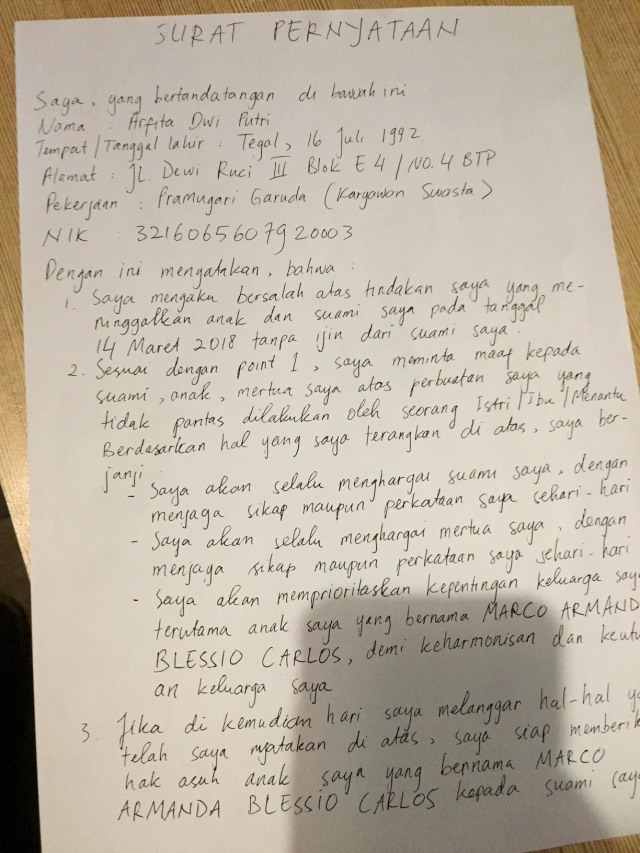 SURAT PERNYATAAN
Saya, yang bertandatangan di bawah ini
Nama : Arfita Dwi Putri
Tempat/Tanggal lahir : Tegal, 16 Juli 1992
Alamat : JL. Dewi Ruci III Blok E4/NO.4 BTP
Pekerjaan : Pramugari Garuda (Karyawan Swasta)
NIK : 3216065607920003
Dengan ini mengatakan, bahwa :
1. Saya mengaku bersalah atas tindakan saya yang me-
ninggalkan anak dan suami saya pada tanggal
14 Maret 2018 tanpa ijin dari suami saya.
2. Sesuai dengan point 1, saya meminta maaf kepada
suami, anak, mertua saya atas perbuatan saya yang
tidak pantas dilakukan oleh seorang Istri/Ibu/Menantu
Berdasarkan hal yang saya terangkan di atas, saya ber-
janji
- Saya akan selalu menghargai suami saya, dengan
menjaga sikap maupun perkataan saya sehari-hari
- Saya akan selalu menghargai mertua saya, dengan
menjaga sikap maupun perkataan saya sehari-hari
- Saya akan memprioritaskan kepentingan keluarga say
terutama anak saya yang bernama MARCO ARMAND
BLESSIO CARLOS, demi keharmonisan dan keutu
an keluarga saya
3. Jika di kemudian hari saya melanggar hal-hal y
telah saya nyatakan di atas, saya siap memberik
hak asuh anak saya yang bernama MARCO
ARMANDA BLESSIO CARLOS kepada suami say